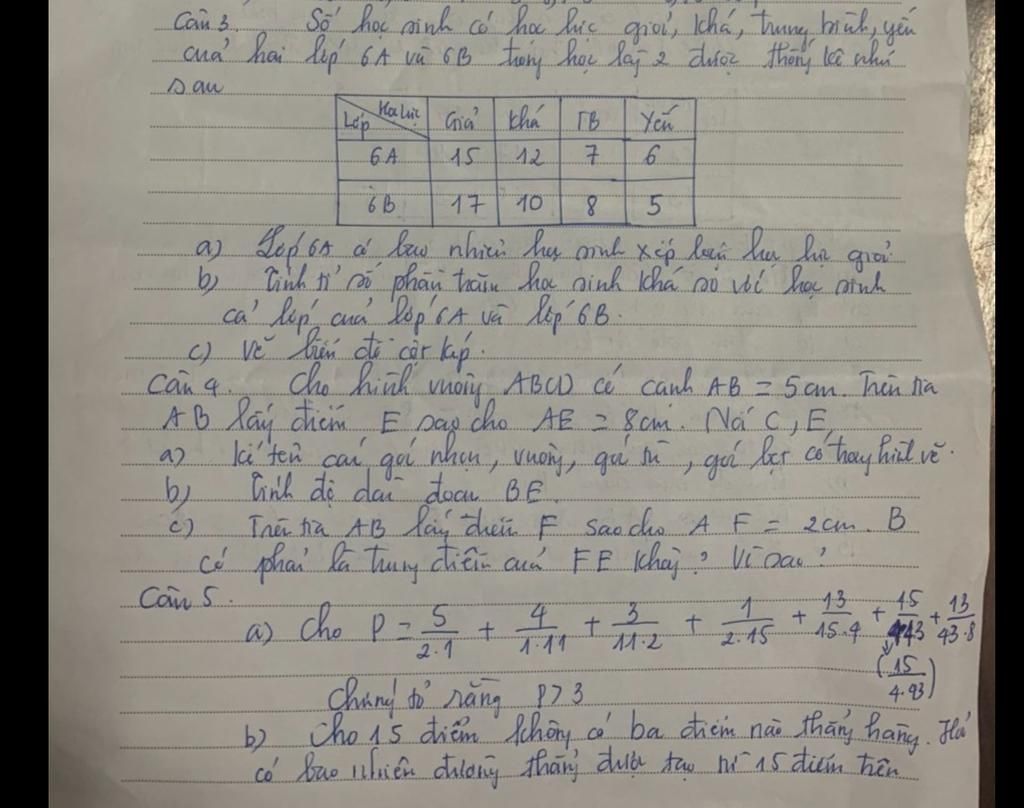 Câu 3. Số học sinh có học lực giỏi, khá, trung bình, yếu
của hai lớp 6A và 6B trong học kỳ 2 được thống kê như
sau
Học lực
Lớp Giỏi Khá TB Yếu
6A 15 12 7 6
6B 17 10 8 5
a) Lớp 6A có bao nhiêu học sinh xếp loại học lực giỏi
b) Tính tỉ số phần trăm học sinh khá so với học sinh
cả lớp của lớp 6A và lớp 6B.
c) Vẽ biểu đồ cột kép.
Câu 4. Cho hình vuông ABCD có cạnh AB = 5cm. Trên tia
AB lấy điểm E sao cho AE = 8cm. Nối C, E.
a) Kể tên các góc nhọn, vuông, góc tù, góc bẹt có trong hình vẽ.
b) Tính độ dài đoạn BE.
c) Trên tia AB lấy điểm F sao cho AF = 2cm. B
có phải là trung điểm của FE không? Vì sao?
Câu 5.
a) Cho P = 5/2.1 + 4/1.11 + 3/11.2 + 1/2.15 + 13/15.4 + 15/4.43 + 13/43.8
(15/4.43)
Chứng tỏ rằng P > 3
b) Cho 15 điểm không có ba điểm nào thẳng hàng. Hỏi
có bao nhiêu đường thẳng được tạo từ 15 điểm trên